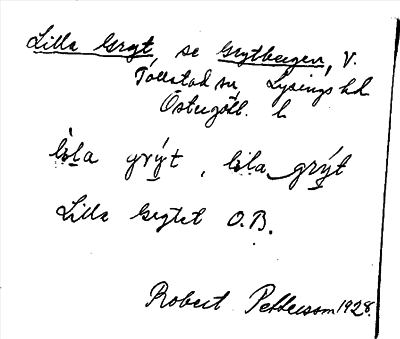 Lilla Gryt, se Grytbergen, V.
Tollstad sn, Lysings hd
Östergötl. l
lìla grýt, lìla grýt
Lilla Grytet O.B.
Robert Pettersson 1928.